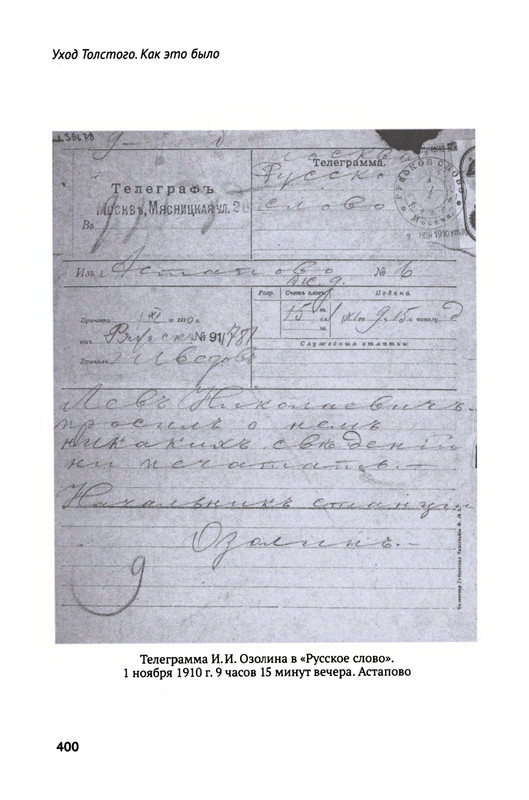 Уход Толстого. Как это было
Телеграмма.
Москва
Русско
слово
Телеграфъ
Москвѣ, Мясницкая ул. 2
Въ
Изъ Астапово № 6
Разр. Счетъ словъ Подана
15 9 15
Принята XI 1910 г.
№ 91/781
Принялъ
Служебныя отмѣтки
Левъ Николаевичъ
просилъ о немъ
никакихъ свѣденій
ни печатать.
Начальникъ станціи
Озолинъ.
9
Телеграмма И.И. Озолина в «Русское слово».
1 ноября 1910 г. 9 часов 15 минут вечера. Астапово
400